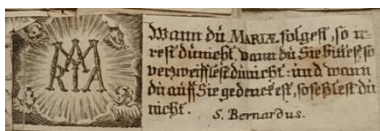 MARIA
Wann dŭ MARIÆ folgest, so ir-
rest dŭ nicht, wann dŭ Sie bittest, so
verzweifflest dŭ nicht: ŭnd wann
dŭ aŭff Sie gedenckest, so fehlest dŭ
nicht.
S. Bernardus.